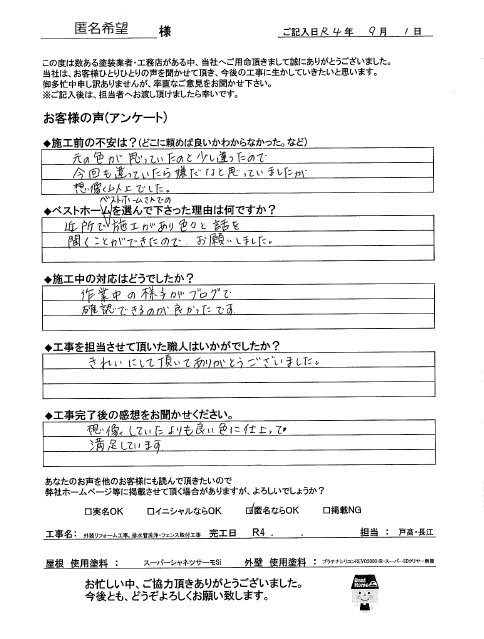 匿名希望 様
ご記入日 R4年 9月 1日
この度は数ある塗装業者・工務店がある中、当社へご用命頂きまして誠にありがとうございました。
当社は、お客様ひとりひとりの声を聞かせて頂き、今後の工事に生かしていきたいと思います。
御多忙中申し訳ありませんが、率直なご意見をお聞かせ下さい。
※ご記入後は、担当者へお渡し頂けましたら幸いです。
お客様の声(アンケート)
◆施工前の不安は？(どこに頼めば良いかわからなかった。など)
元の色が思っていたのと少し違ったので
今回も違っていたら嫌だなと思っていましたが
想像以上でした。
◆ベストホームを選んで下さった理由は何ですか？
ベストホームさんでの
近所で施工があり色々と話を
聞くことができたので、お願いしました。
◆施工中の対応はどうでしたか？
作業中の様子がブログで
確認できるのが良かったです
◆工事を担当させて頂いた職人はいかがでしたか？
きれいにして頂いてありがとうございました。
◆工事完了後の感想をお聞かせください。
想像していたよりも良い色に仕上って
満足しています
あなたのお声を他のお客様にも読んで頂きたいので
弊社ホームページ等に掲載させて頂く場合がありますが、よろしいでしょうか？
□実名OK □イニシャルならOK ☑匿名ならOK □掲載NG
工事名： 外装リフォーム工事、排水管洗浄・フェンス取付工事 完工日 R4 . . 担当： 戸高・長江
屋根 使用塗料： スーパーシャネツサーモSi 外壁 使用塗料：
お忙しい中、ご協力頂きありがとうございました。
今後とも、どうぞよろしくお願い致します。
Best Home